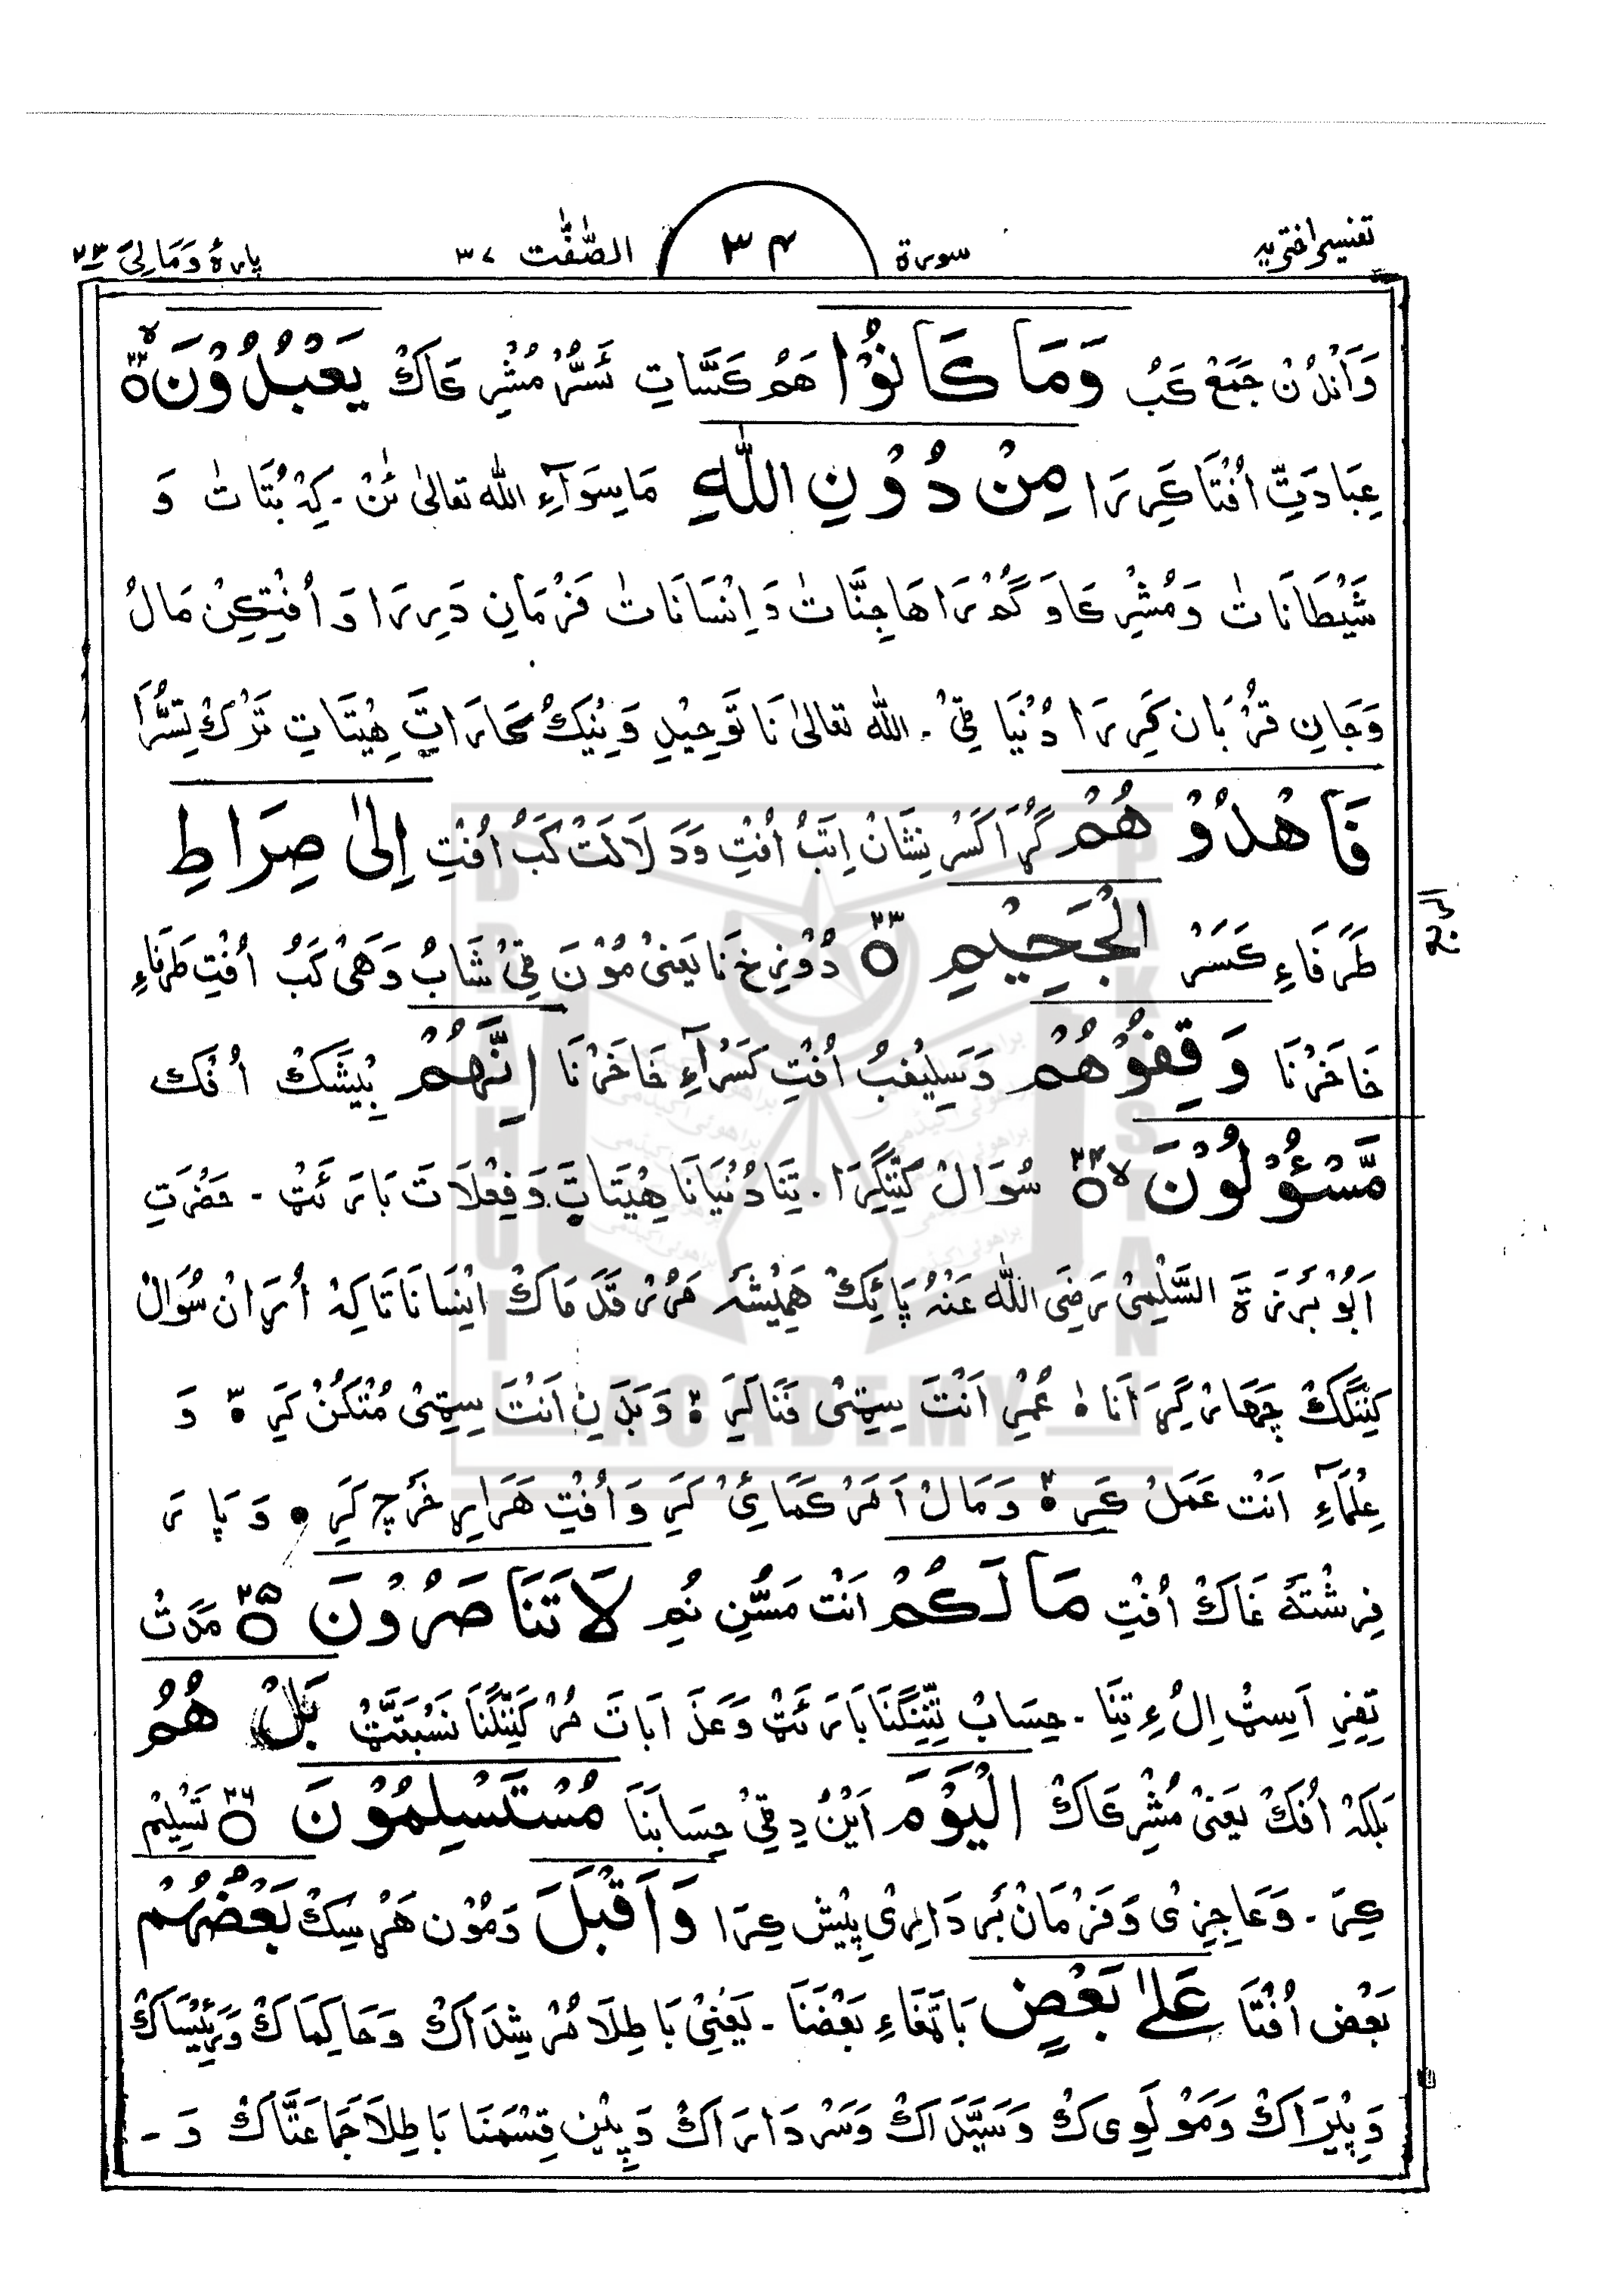 تفسیر اختریہ سورة ۳۴ الصّٰفّٰت ۳۷ پارۂ وَمَالِیَ ۲۳
وَاَنْدُنْ جَمَعْ کَبُ وَمَا كَانُوْا هَمْ کَسَّاتِ نَسُرُّ مُشْرِکَاکْ يَعْبُدُوْنَ ۲۲ لا
عِبَادَتِ اُفْتَا کَرِیرَا مِنْ دُوْنِ اللّٰهِ مَاسِوَآءِ اللّٰه تعالیٰ ئَنْ ۔ کِهْ بُتَاتْ وَ
شَیْطَانَاتْ وَمُشْرِکَا وَ گُمْرَاهَا جِنَّاتْ وَاِنْسَانَاتْ فَرْمَانِ دَرِیرَا وَ اُفْتِکِنْ مَالُ
وَجَانِ قُرْبَان کَرِیرَا دُنْیَا قِیْ ۔ اللّٰه تعالیٰ نَا تَوحِیْدِ وَنِیْکُ کَارَاتِ هِیْتَاتِ تَرْکْ
فَاهْدُوْهُمْ گُرَا کَسَرْ نِشَانْ اِتَبُ اُفْتِ وَدَلَالَتْ کَبُ اُفْتِ اِلٰى صِرَاطِ
طَرَفَاءِ کَسَرْ الْجَحِيْمِ ۲۳ دُوْزِخْ نَا یَعْنیْ مُوْنَ قِیْ شَابُ وَهَیْ کَبُ اُفْتِ طَرَفَاءِ
خَاخَرْنَا وَقِفُوْهُمْ وَسَلِیْفِبُ اُفْتِ کَسَرْآءِ خَاخَرْنَا اِنَّهُمْ بِیْشَکْ اُفَکْ
مَّسْـُٔوْلُوْنَ ۲۴ لا سُوَالْ کَنِّنْگِرَا ۔ تِنَا دُنْیَانَا هِیْتَاتَ وَفِعْلَاتَ بَارَئَتْ ۔ حَضْرَتِ
اَبُوْبَرْزَةَ السَّلِمِیْ رَضِیَ اللّٰه عَنْهُ پَائِکْ هَمِیْشَه مَرُرْ قَدَمَاکْ اِنْسَانَاتَا کِهْ اُرَانْ سُوَالْ
کِنِّنْگِکْ چَهَارْ گِرَا اَنَاہْ عُمْرِ اَنْتَ سِتِیْ فَنَا کَرِہْ وَبَدَنِ اَنْتَ سِتِیْ کَرِہْ وَ
عِلْمَآءِ اَنْتْ عَمَلْ کَرِہْ وَمَالْ اَمَرْ کَمَائِیْ کَرِ وَاُفْتِ هَرَارِ خَرْچ کَرِ • وَ پَارَ
فِرِشْتَه غَاکْ اُفْتِ مَا لَكُمْ اَنْتْ مَسُّنِ نُمِ لَا تَنَاصَرُوْنَ ۲۵ مَدَتْ
تِفِرِ اَسِتْ اِلُءِ تِنَا ۔ حِسَابْ تِنِّنْگَنَا بَارَئَتْ وَعَذَابَاتَ مُرْ کَنِّنْگَنَا نَسْبَتَتْ بَلْ هُمُ
بَلکِهْ اُفَکْ یَعْنیْ مُشْرِکَاکْ الْيَوْمَ اَیْنْ دِقِیْ حِسَابَنَا مُسْتَسْلِمُوْنَ ۲۶ تَسْلِیْم
کِرَ ۔ وَعَاجِزِیْ وَفَرْمَانْ بَرْدَارِیْ پِیْش کِرَا وَاَقْبَلَ وَمُوْنِ هَرْسِکْ بَعْضُهُمْ
بَعْض اُفْتَا عَلٰى بَعْضٍ بَاتَّغَاءِ بَعْضَنَا ۔ یَعْنِیْ بَاطِلَا مُرْشِدَاکْ وَحَاکِمَاکْ وَرَئِیْسَاکْ
وَپِیْرَاکْ وَمَوْلَوِیْکْ وَسَیِّدَاکْ وَسَرْدَارَاکْ وَپِیْنِ قِسْمَنَا بَاطِلَا جَمَاعَتَّاکْ وَ ۔